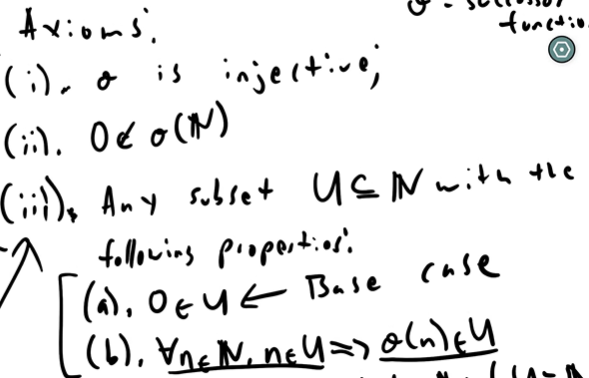 σ = successor
function
Axioms:
(i). σ is injective;
(ii). 0 ∉ σ(ℕ)
(iii). Any subset U ⊆ ℕ with the
following properties:
(a). 0 ∈ U ← Base case
(b). ∀n∈ℕ, n∈U => σ(n)∈U